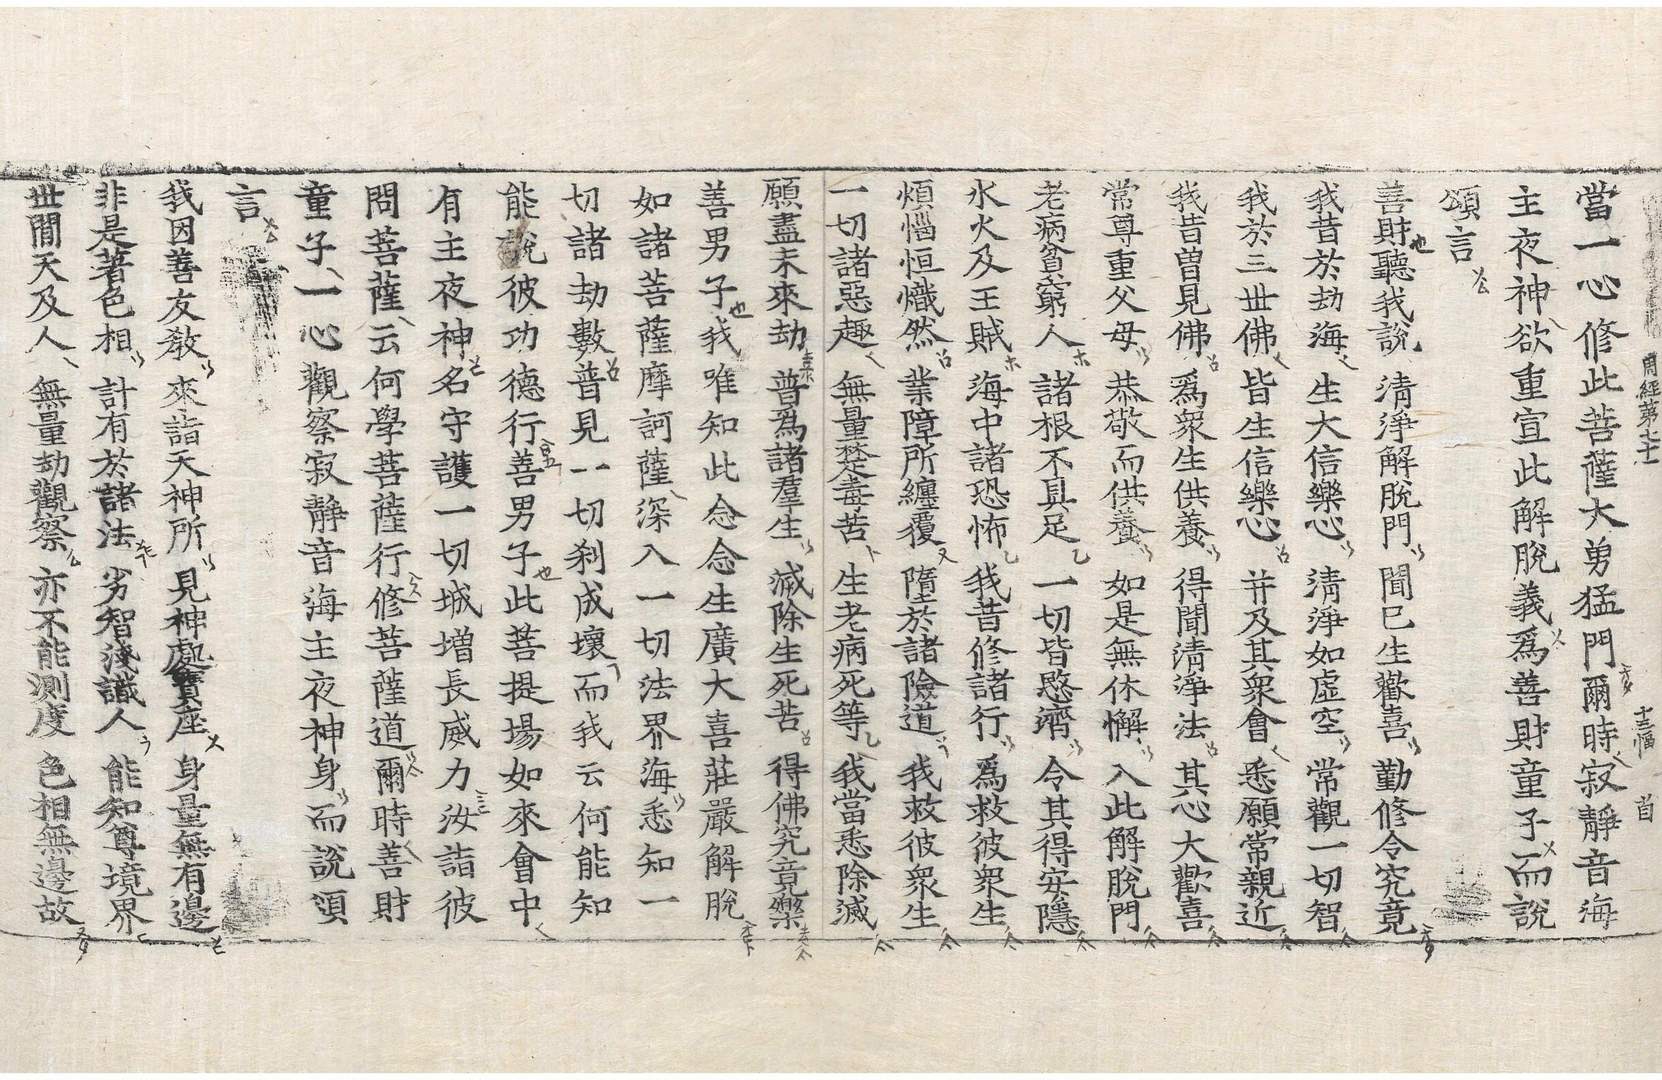 周經第七十一　十三幅　首
當一心修此菩薩大勇猛門爾時寂靜音海
主夜神欲重宣此解脫義爲善財童子而說
頌言
善財聽我說　清淨解脫門　聞已生歡喜　勤修令究竟
我昔於劫海　生大信樂心　清淨如虛空　常觀一切智
我於三世佛　皆生信樂心　并及其衆會　悉願常親近
我昔曾見佛　爲衆生供養　得聞清淨法　其心大歡喜
常尊重父母　恭敬而供養　如是無休懈　入此解脫門
老病貧窮人　諸根不具足　一切皆愍濟　令其得安隱
水火及王賊　海中諸恐怖　我昔修諸行　爲救彼衆生
煩惱恒熾然　業障所纏覆　墮於諸險道　我救彼衆生
一切諸惡趣　無量楚毒苦　生老病死等　我當悉除滅
願盡未來劫　普爲諸羣生　滅除生死苦　得佛究竟樂
善男子我唯知此念念生廣大喜莊嚴解脫
如諸菩薩摩訶薩深入一切法界海悉知一
切諸劫數普見一切刹成壞而我云何能知
能說彼功德行善男子此菩提場如來會中
有主夜神名守護一切城增長威力汝詣彼
問菩薩云何學菩薩行修菩薩道爾時善財
童子一心觀察寂靜音海主夜神身而說頌
言
我因善友敎　來詣天神所　見神處寶座　身量無有邊
非是著色相　計有於諸法　劣智淺識人　能知尊境界
世閒天及人　無量劫觀察　亦不能測度　色相無邊故